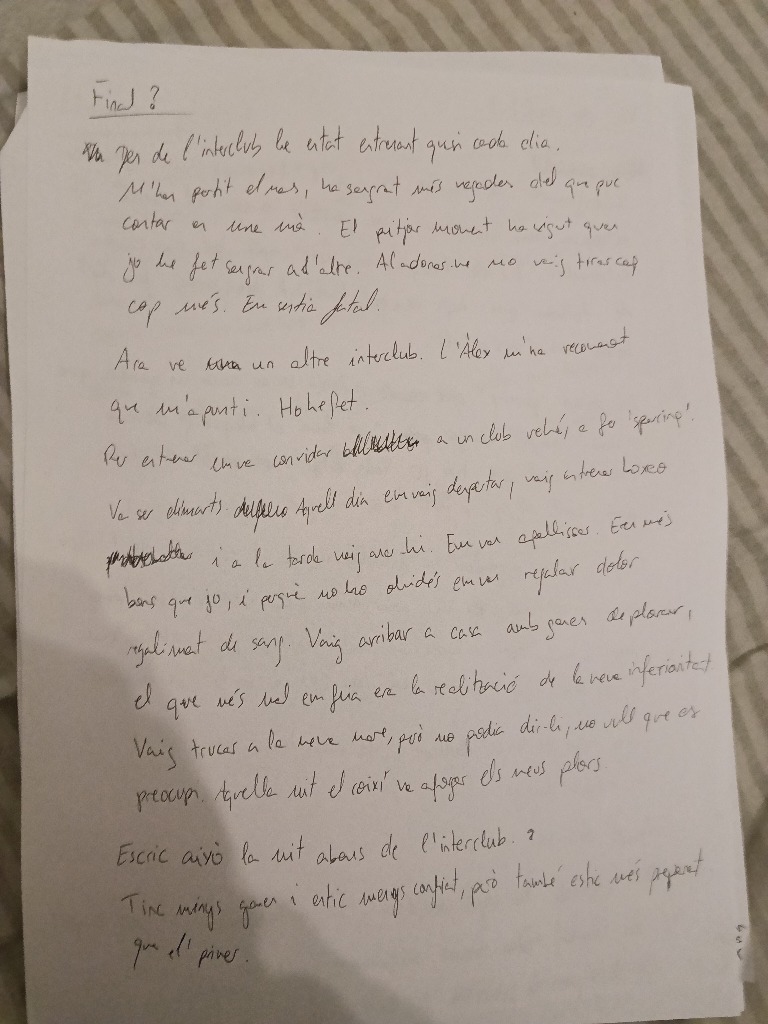 Final ?
Des de l'interclub he estat entrenant quasi cada dia.
M'han partit el nas, ha sangrat més vegades del que puc
contar en una mà. El pitjor moment ha sigut quan
jo he fet sangrar a l'altre. Aladonas-me no vaig tirar cap
cop més. Em sentia fatal.
Ara ve un altre interclub. L'Àlex m'ha recomanat
que m'apunti. Ho he fet.
Per entrenar em va convidar a un club veí, a fer 'sparring'.
Va ser dimarts. Aquell dia em vaig despertar, vaig entrenar boxeo
i a la tarda vaig anar-hi. Em van apallissar. Eren més
bons que jo, i perquè no ho olvidés em van regalar dolor
regalimat de sang. Vaig arribar a casa amb ganes de plorar,
el que més mal em feia era la realització de la meva inferioritat
Vaig trucar a la meva mare, però no podia dir-li, no vull que es
preocupi. Aquella nit el coixí va afogar els meus plors.
Escric això la nit abans de l'interclub. ?
Tinc menys ganes i estic menys confiat, però també estic més preparat
que el primer.